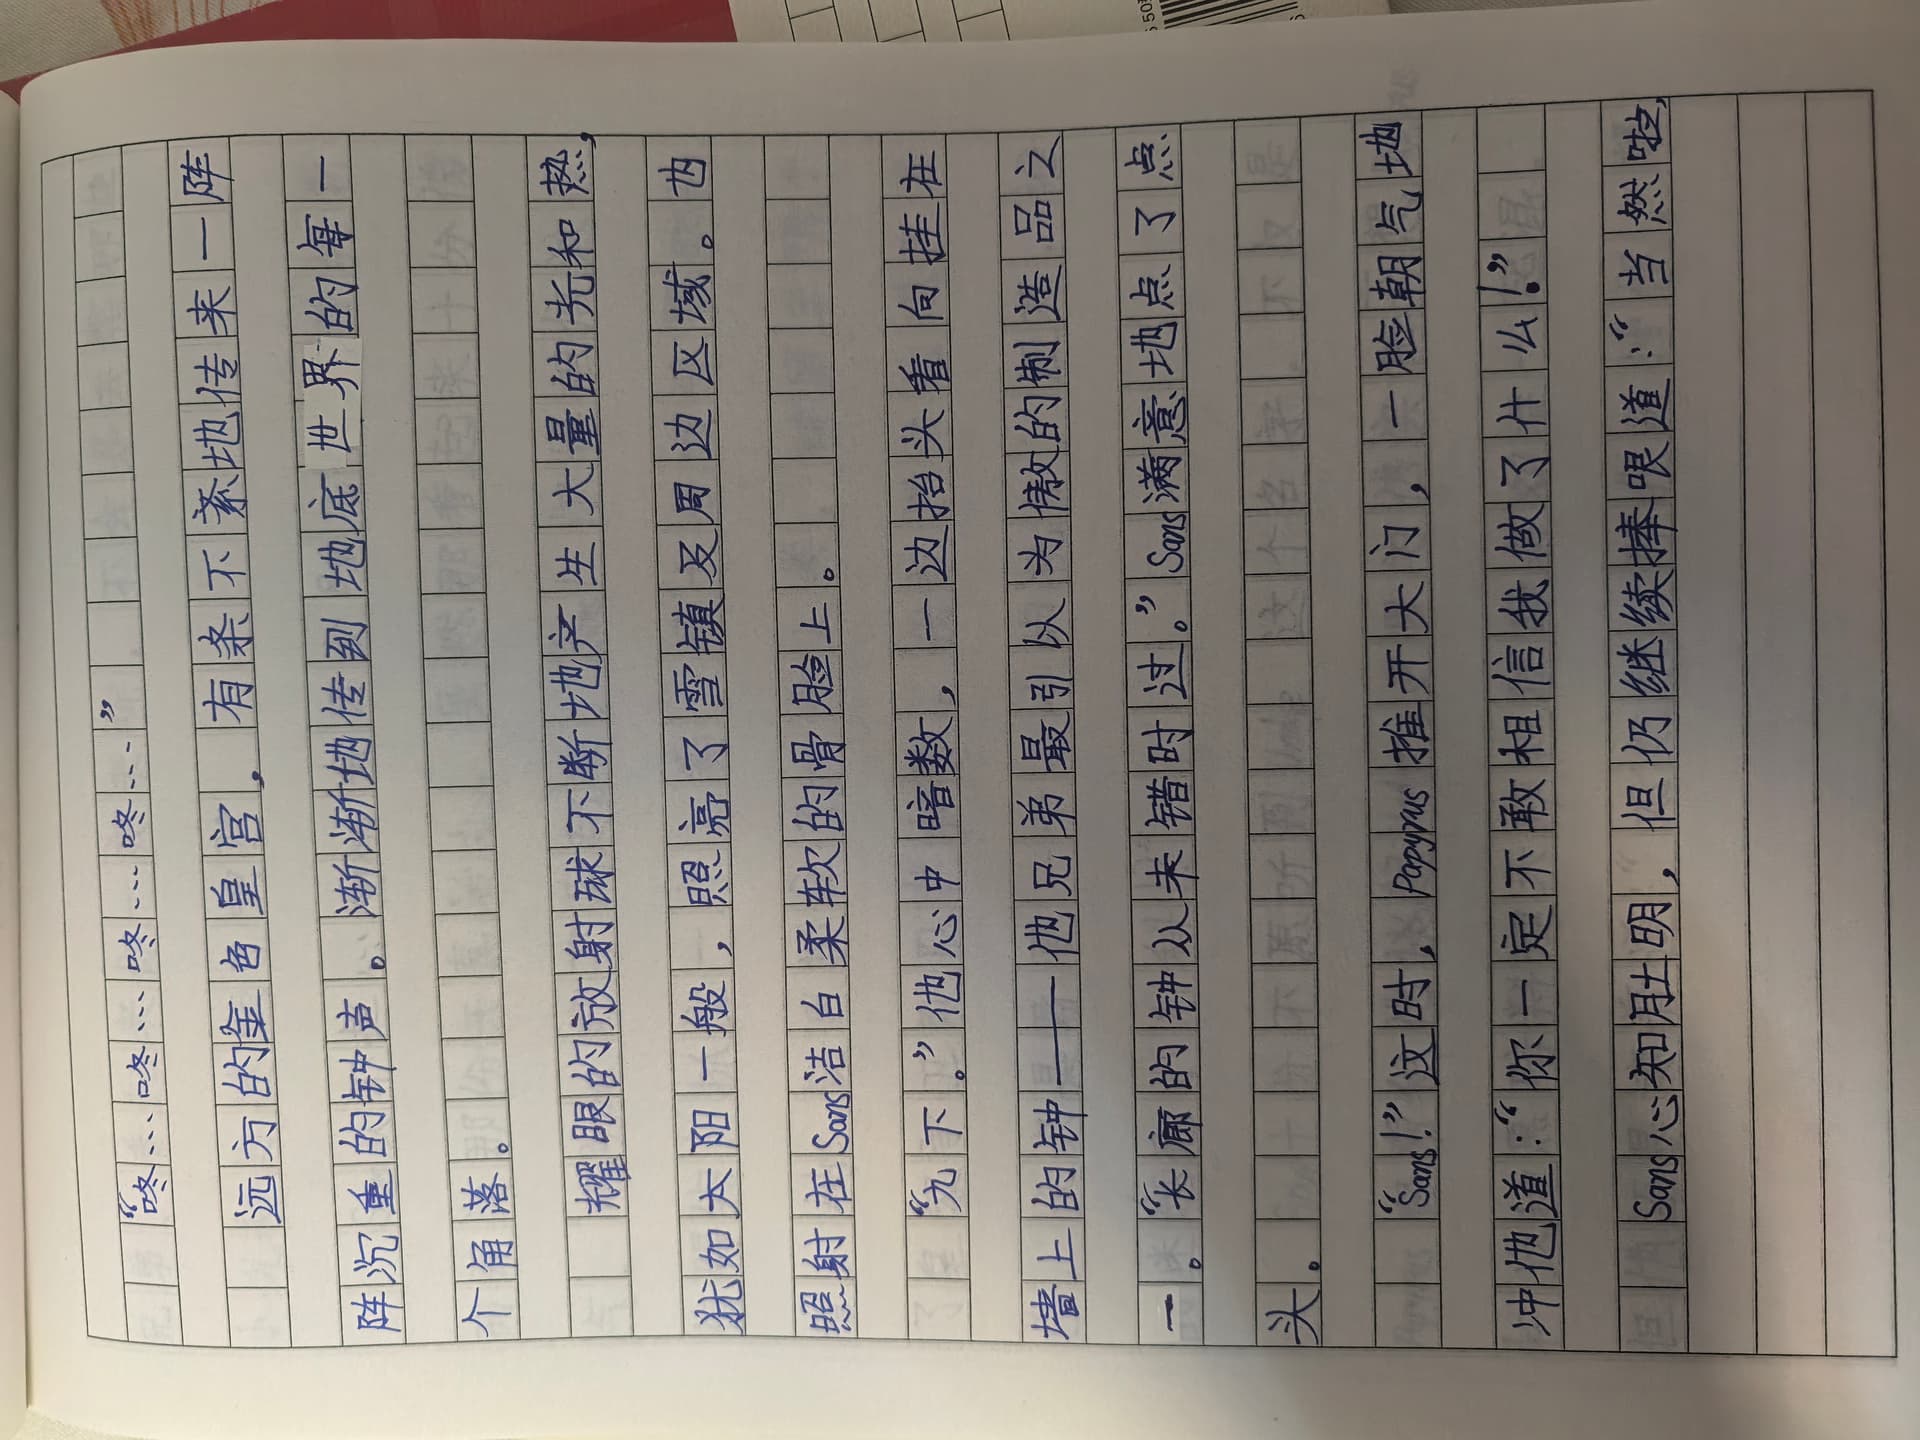 “咚……咚……咚……咚……”
远方的金色皇宫，有条不紊地传来一阵
阵沉重的钟声。渐渐地传到地底世界的每一
个角落。
耀眼的放射球不断地产生大量的光和热，
犹如太阳一般，照亮了雪镇及周边区域。也
照射在Sans洁白柔软的骨脸上。
“九下。”他心中暗数，一边抬头看向挂在
墙上的钟——他兄弟最引以为傲的制造品之
一。“长廊的钟从未错时过。”Sans满意地点了点
头。
“Sans！”这时，Papyrus推开大门，一脸朝气地
冲他道：“你一定不敢相信我做了什么！”
Sans心知肚明，但仍继续捧哏道：“当然啦，